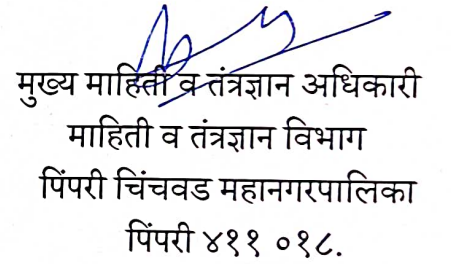 मुख्य माहिती व तंत्रज्ञान अधिकारी
माहिती व तंत्रज्ञान विभाग
पिंपरी चिंचवड महानगरपालिका
पिंपरी ४११ ०१८.